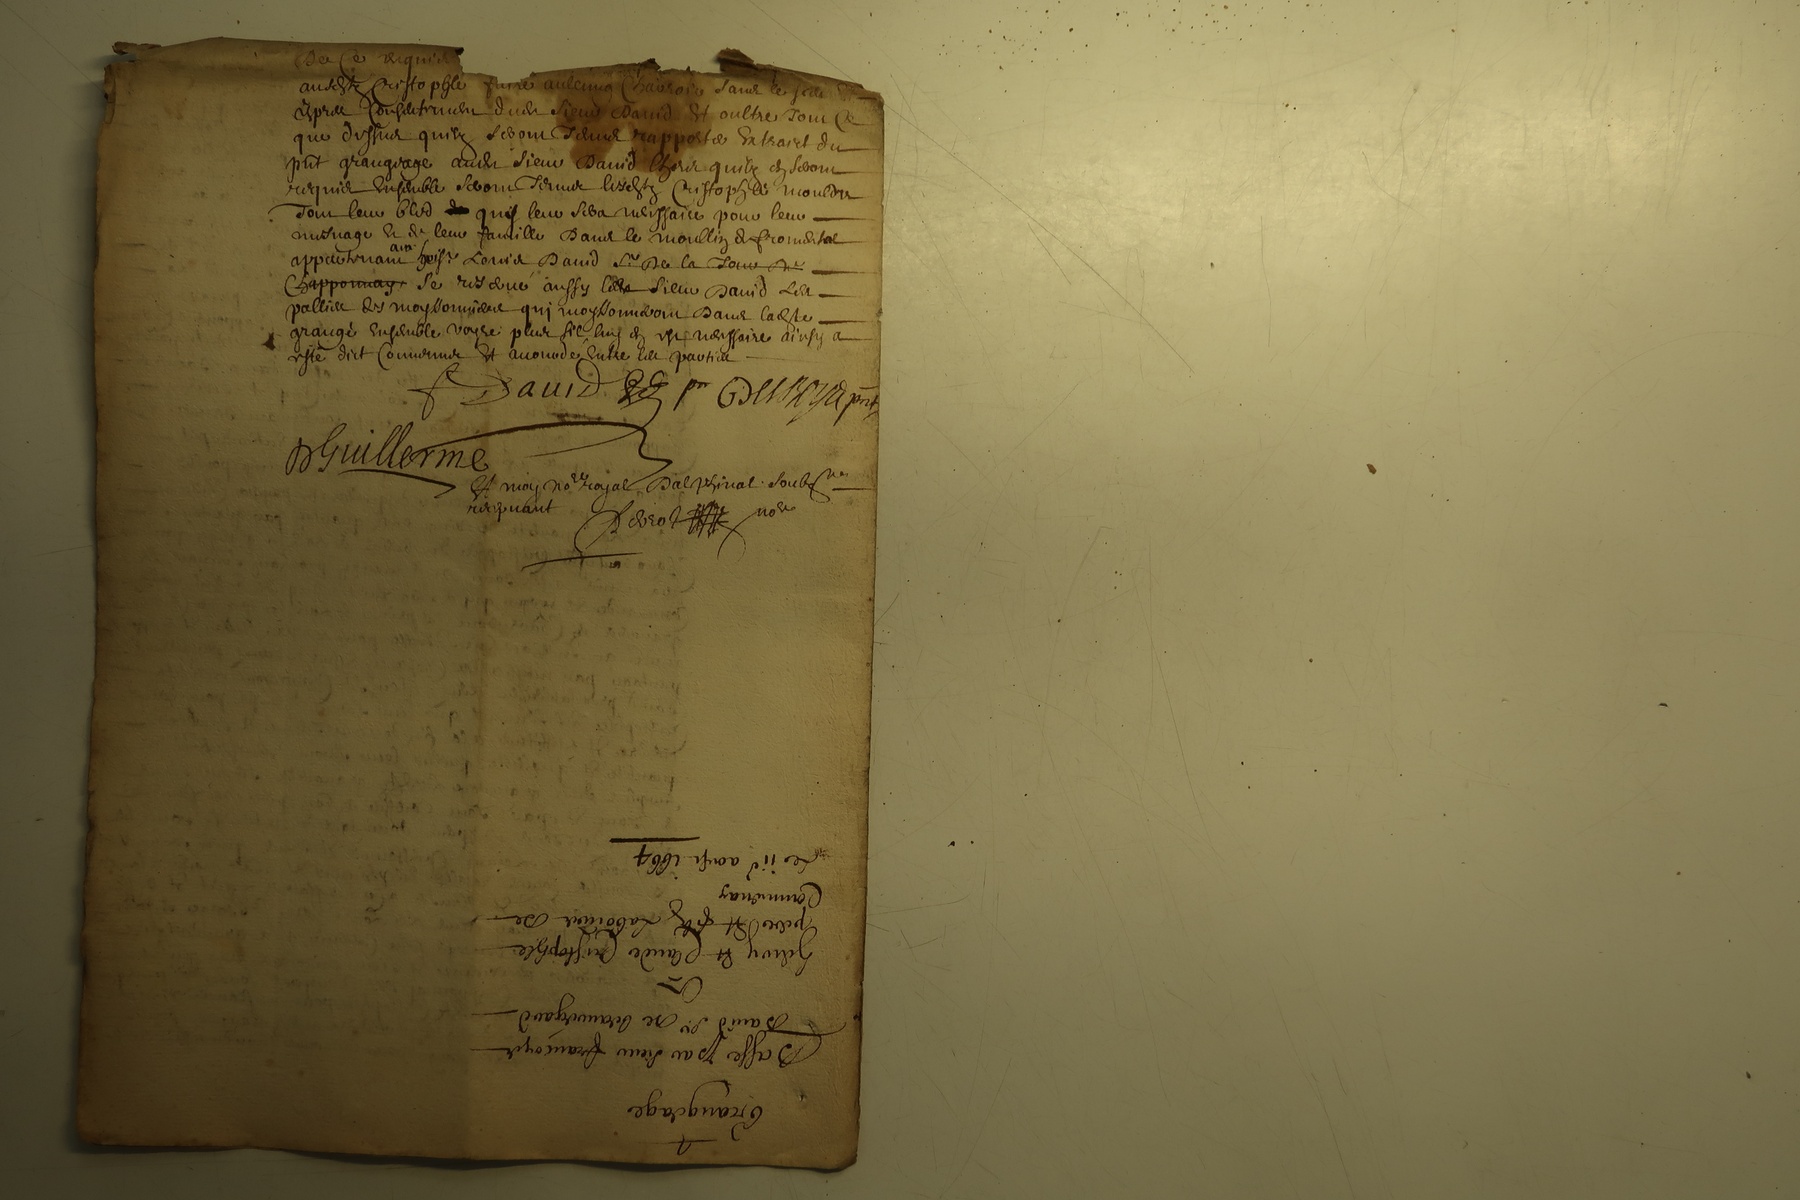 De Ce requis
ausdtz Cristophle faire aulcung Charroir sans le
Expres Consentement dudit Sieur David Et oultre tout Ce
que dessus quilz seront tenus rapporter Extraict du
pnt grangeage audit Sieur David lhors quilz en seront
requis Ensemble seront tenus lesdtz Cristophles mouldre
Tout leur bled quil leur sera nessaire pour leur
mesnage Et de leur famille Dans le moullin de fromental
appartenant aux hoirs Louis David Sr De la Tour De
Chapponnay Se reservé aussy ledit Sieur David Les
pallies des moyssonniers qui moyssonneront Dans ladte
grange Ensemble voyre plus sil luy en est nessaire ainsy a
esté dict Convenus Et accordé Entre les parties
f David pnt
Guillerme
Et moy nore royal Dalphinal Soubzne
recepvant
nore
Grangeage
Passe par Sieur françoys
David Sr De beauregard
A
Henry Et Claude Cristophle
pere Et filz Laboureur De
Communay
Le iie aoust 1664